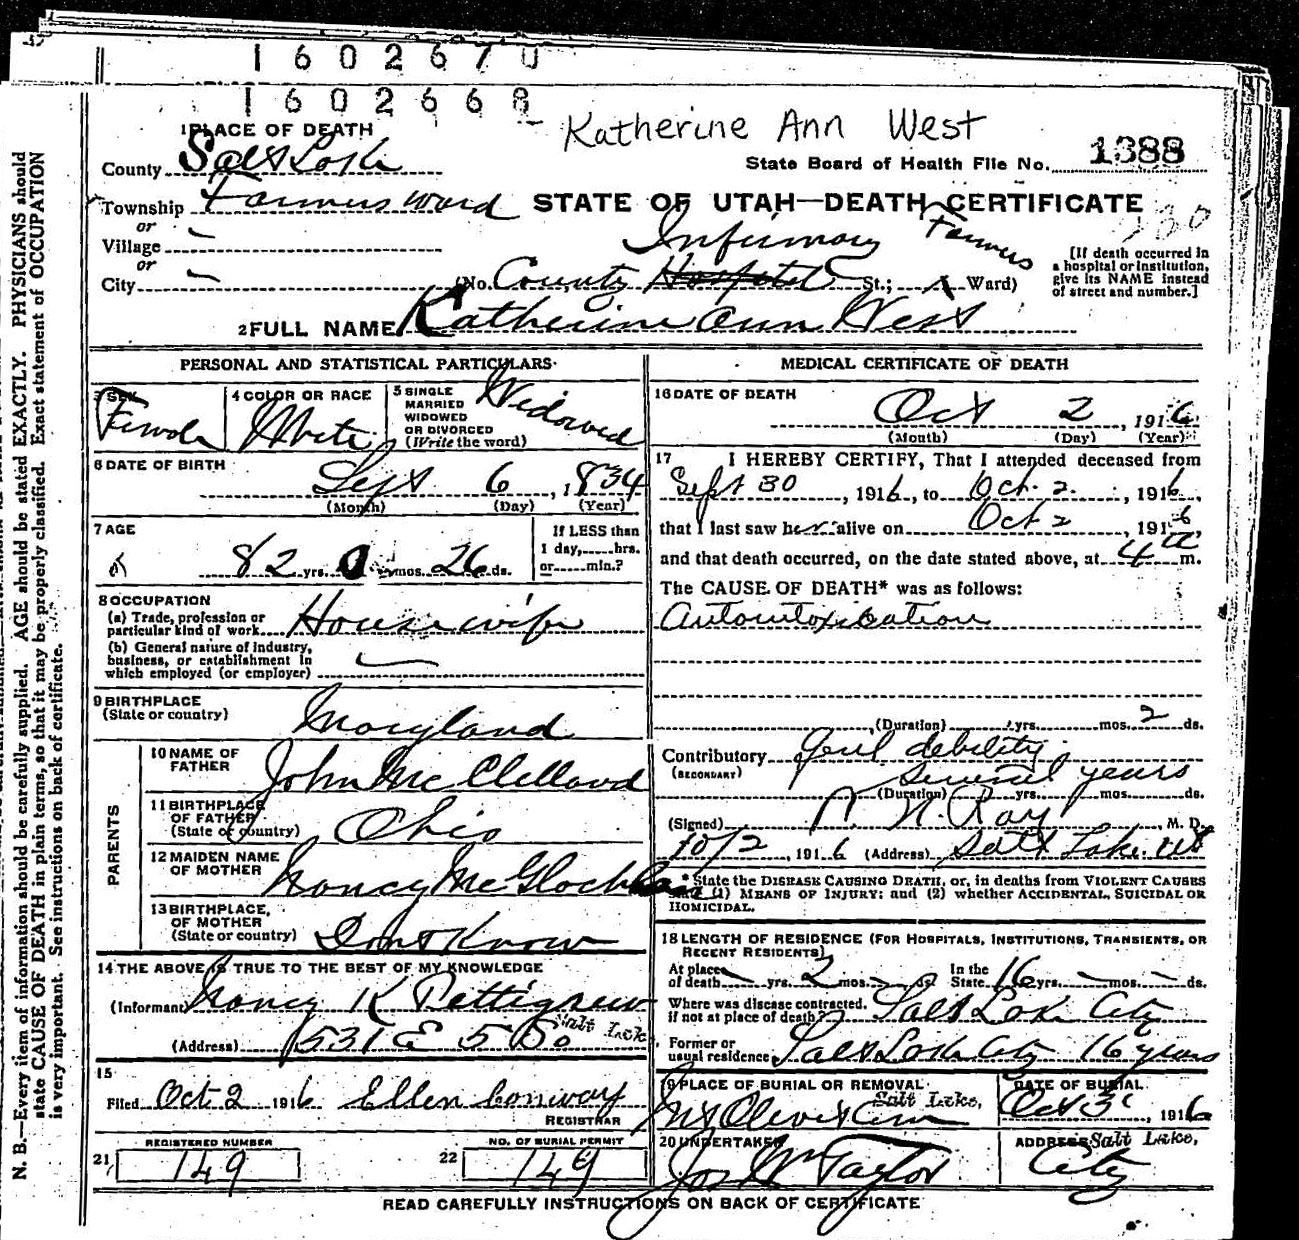 1602670
1602668
Katherine Ann West
1 PLACE OF DEATH
County Salt Lake
State Board of Health File No. 1388
Township Farmers Ward
STATE OF UTAH—DEATH CERTIFICATE
or
Village
Infirmary Farmers
or
City (No. County Hospital St.; Ward)
[If death occurred in a hospital or institution, give its NAME instead of street and number.]
2 FULL NAME Katherine Ann West
PERSONAL AND STATISTICAL PARTICULARS
3 SEX Female
4 COLOR OR RACE White
5 SINGLE MARRIED WIDOWED OR DIVORCED (Write the word) Widowed
6 DATE OF BIRTH
Sept 6, 1834
(Month) (Day) (Year)
7 AGE
82 yrs. 0 mos. 26 ds.
If LESS than 1 day, hrs. or min.?
8 OCCUPATION
(a) Trade, profession or particular kind of work Housewife
(b) General nature of industry, business, or establishment in which employed (or employer)
9 BIRTHPLACE (State or country) Maryland
PARENTS
10 NAME OF FATHER John McClelland
11 BIRTHPLACE OF FATHER (State or country) Ohio
12 MAIDEN NAME OF MOTHER Nancy McGlochlan
13 BIRTHPLACE OF MOTHER (State or country) Dont Know
14 THE ABOVE IS TRUE TO THE BEST OF MY KNOWLEDGE
(Informant) Nancy K Pettigrew
(Address) 1531 E 5 So Salt Lake
15
Filed Oct 2 1916 Ellen Conway
REGISTRAR
REGISTERED NUMBER
21 149
NO. OF BURIAL PERMIT
22 149
MEDICAL CERTIFICATE OF DEATH
16 DATE OF DEATH
Oct 2, 1916
(Month) (Day) (Year)
17 I HEREBY CERTIFY, That I attended deceased from
Sept 30, 1916, to Oct. 2, 1916,
that I last saw her alive on Oct 2, 1916
and that death occurred, on the date stated above, at 4 a m.
The CAUSE OF DEATH* was as follows:
Autointoxication
(Duration) yrs. mos. 2 ds.
Contributory Genl debility
(SECONDARY) several years
(Duration) yrs. mos. ds.
(Signed) N. Ray, M. D.
10/2, 1916 (Address) Salt Lake Ut
* State the DISEASE CAUSING DEATH, or, in deaths from VIOLENT CAUSES
state (1) MEANS OF INJURY; and (2) whether ACCIDENTAL, SUICIDAL OR
HOMICIDAL.
18 LENGTH OF RESIDENCE (FOR HOSPITALS, INSTITUTIONS, TRANSIENTS, OR
RECENT RESIDENTS)
At place of death yrs. 2 mos. ds. In the State 16 yrs. mos. ds.
Where was disease contracted, if not at place of death? Salt Lake City
Former or usual residence Salt Lake City 16 years
19 PLACE OF BURIAL OR REMOVAL
Mt Olivet Cem Salt Lake,
DATE OF BURIAL
Oct 3, 1916
20 UNDERTAKER
Jos Wm Taylor
ADDRESS Salt Lake,
City
READ CAREFULLY INSTRUCTIONS ON BACK OF CERTIFICATE
N. B.—Every item of information should be carefully supplied. AGE should be stated EXACTLY. PHYSICIANS should
state CAUSE OF DEATH in plain terms, so that it may be properly classified. Exact statement of OCCUPATION
is very important. See instructions on back of certificate.